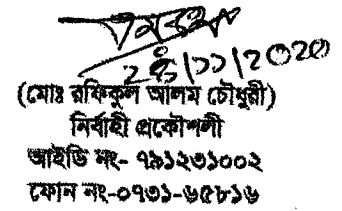 (মোঃ রফিকুল আলম চৌধুরী)
নির্বাহী প্রকৌশলী
আইডি নং- ৭৯১২৩১০০২
ফোন নং-০৭৩১-৬৫৮১৬